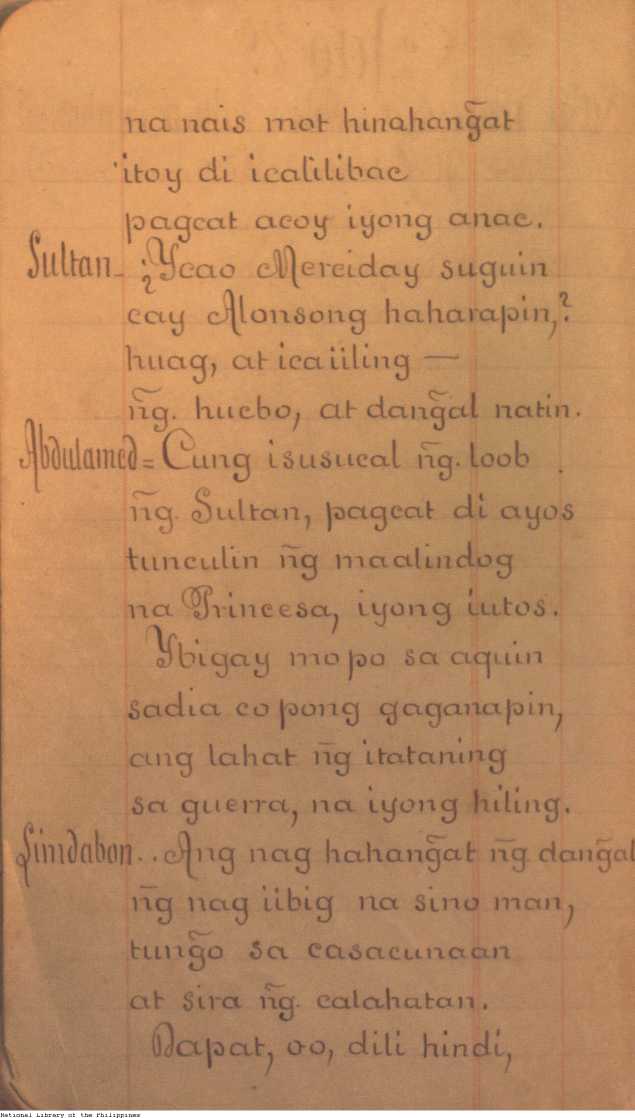 na nais mot hinahang̃at
itoy di icalilibac
pagcat acoy iyong anac.
Sultan - ¿Ycao Merciday suguin
cay Alonsong haharapin,?
huag, at icaiiling —
ñg. huebo, at dang̃al natin.
Abdulamed = Cung isusucal ñg. loob
ñg. Sultan, pagcat di ayos
tunculin ñg maalindog
na Princesa, iyong iutos.
Ybigay mo po sa aquin
sadia co pong gaganapin,
ang lahat ñg itataning
sa guerra, na iyong hiling.
Limdabon .. Ang nag hahang̃at ñg. dang̃al
ñg nag iibig na sino man,
tung̃o sa casacunaan
at sira ñg. calahatan.
Dapat, oo, dili hindi,
National Library of the Philippines